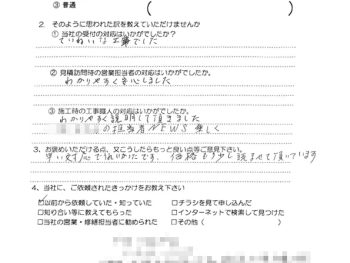 ③ 普通 (　　　)
2. そのように思われた訳を教えていただけませんか
① 当社の受付の対応はいかがでしたか？
ていねいな工事でした
② 見積訪問時の営業担当者の対応はいかがでしたか。
わかりやすく安心しました
③ 施工時の工事職人の対応はいかがでしたか。
わかりやすく説明して頂きました
の担当者NEWS 楽しく
3. お褒めいただける点、又こうしたらもっと良い点等ご意見下さい。
早い対応でれいがたいです、価格も少し 頂いています
4. 当社に、ご依頼されたきっかけをお教え下さい
☑以前から依頼していた・知っていた　□チラシを見て申し込んだ
□知り合い等に教えてもらった　□インターネットで検索して見つけた
□当社の営業・修繕担当者に勧められた　□その他（　　　）